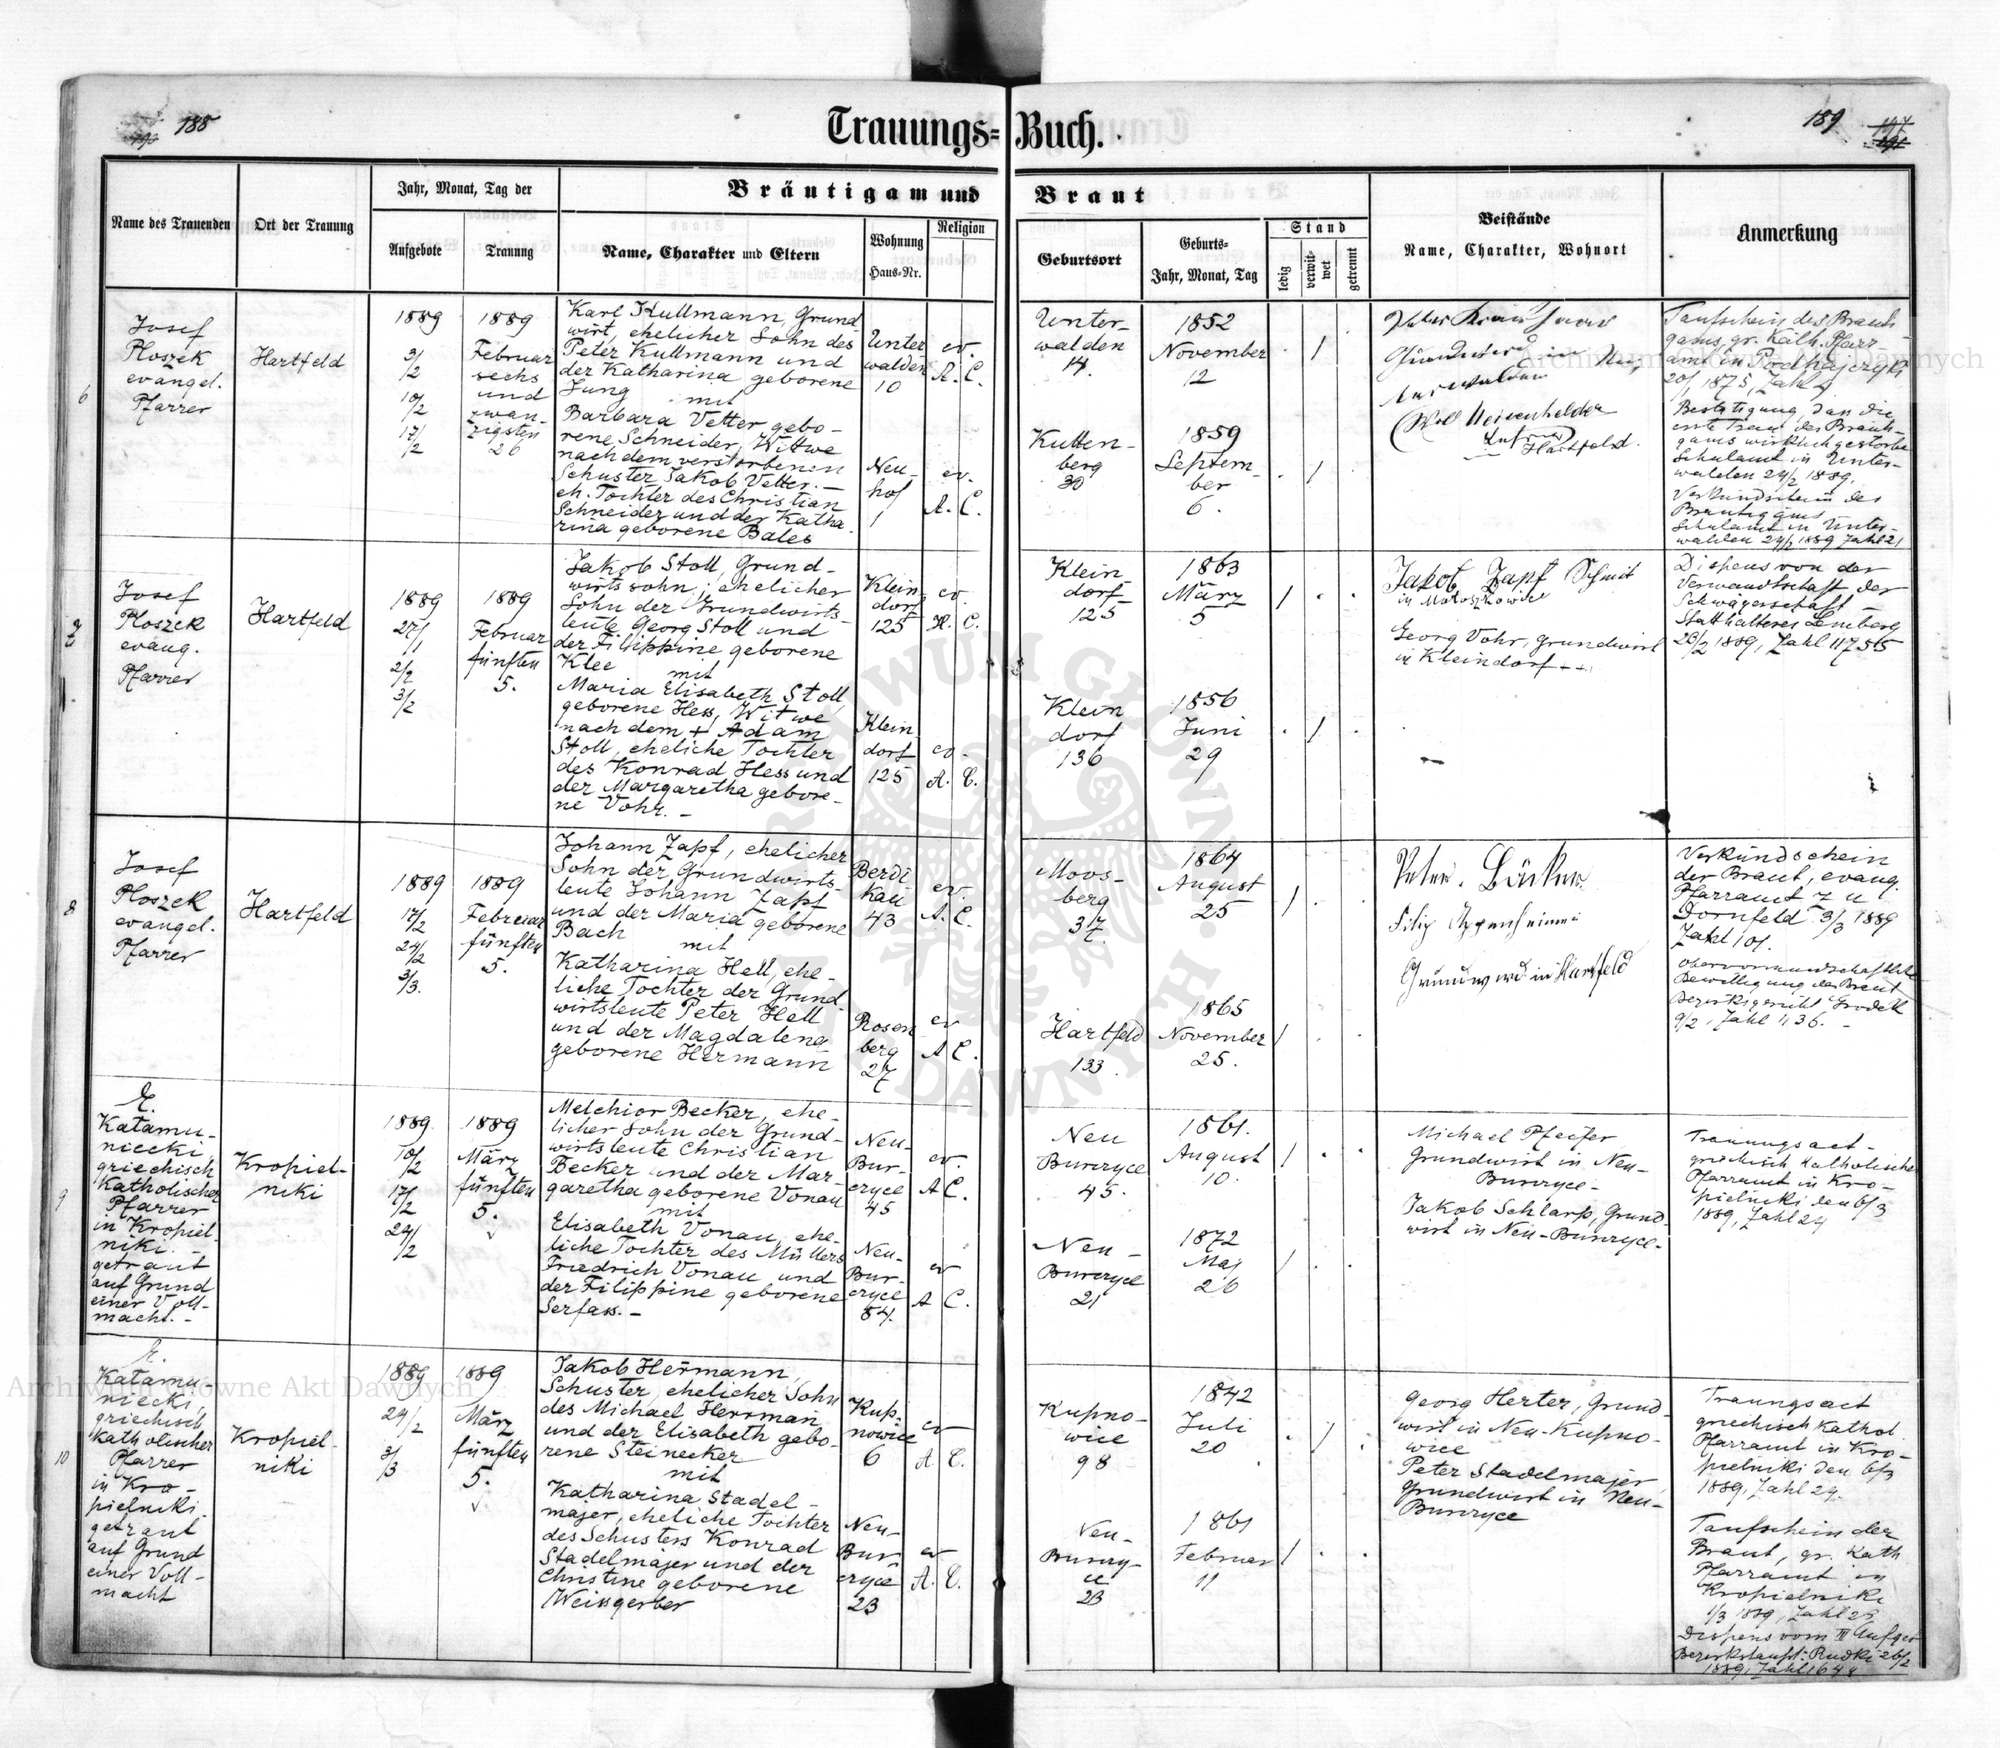 188
Trauungs=Buch.
189
Name des Trauenden
Ort der Trauung
Jahr, Monat, Tag der
Aufgebote
Trauung
Bräutigam und Braut
Name, Charakter und Eltern
Wohnung
Haus=Nr.
Religion
Geburtsort
Geburts=
Jahr, Monat, Tag
Stand
ledig
verwit=
wet
getrennt
Beistände
Name, Charakter, Wohnort
Anmerkung
6
Josef
Ploszek
evangel.
Pfarrer
Hartfeld
1889
3/2
10/2
17/2
1889
Februar
sechs
und
zwan-
zigsten
26
Karl Kullmann, Grund
wirt, ehelicher Sohn des
Peter Kullmann und
der Katharina geborene
Jung mit
Barbara Vetter gebo-
rene Schneider, Witwe
nach dem verstorbenen
Schuster Jakob Vetter. -
eh. Tochter des Christian
Schneider und der Katha-
rina geborene Bales
Unter
walden
10
ev.
A. C.
Neu-
hof
1
ev.
A. C.
Unter-
walden
14.
1852
November
12
Kutten-
berg
30
1859
Septem-
ber
6.
Hartfeld.
Taufschein des Bräuti
gams, gr. Kath. Pfarr-
amt in Podhajczyki
20/1 1875, Zahl 4
Bestätigung, dan die
erste Frau des Bräuti-
gams wirklich gestorben
Schulamt in Unter-
walden 24/2 1889.
Verkündschein des
Bräutigams
Schulamt in Unter-
walden 24/2 1889 Zahl 21
7
Josef
Ploszek
evang.
Pfarrer
Hartfeld
1889
27/1
2/2
3/2
1889
Februar
fünften
5.
Jakob Stoll, Grund-
wirtssohn, ehelicher
Sohn der Grundwirts-
leute Georg Stoll und
der Filippine geborene
Klee mit
Maria Elisabeth Stoll
geborene Hess, Witwe
nach dem + Adam
Stoll, eheliche Tochter
des Konrad Hess und
der Margaretha gebore-
ne Vohr. -
Klein
dorf
125
ev.
H. C.
Klein
dorf
125
ev.
A. C.
Klein
dorf
125
1863
März
5
Klein
dorf
136
1856
Juni
29
Jakob Zapf Schmit
in Mokoszkowice
Georg Vohr, Grundwirt
in Kleindorf - + .
Dispens von der
Verwandtschaft der
Schwägerschaft -
Statthalterei Lemberg
20/2 1889, Zahl 11755
8
Josef
Ploszek
evangel.
Pfarrer
Hartfeld
1889
17/2
24/2
3/3.
1889
Februar
fünften
5.
Johann Zapf, ehelicher
Sohn der Grundwirts-
leute Johann Zapf
und der Maria geborene
Bach mit
Katharina Hell, ehe-
liche Tochter der Grund
wirtsleute Peter Hell
und der Magdalena
geborene Hermann
Berdi
kau
43
ev.
A. C.
Rosen
berg
27
ev
A C.
Moos-
berg
37.
1864
August
25
Hartfeld
133
1865
November
25.
Filip Oppenheimer
Grundwird in Hartfeld
Verkündschein
der Braut, evang.
Pfarramt zu
Dornfeld 3/3 1889
Zahl 101.
Obervormundschaftliche
Bewilligung der Braut
Bezirksgericht Grodek
9/2, Zahl 1136. -
9
E.
Katamu-
niecki,
griechisch
Katholischer
Pfarrer
in Kropiel-
niki. -
getraut
auf Grund
einer Voll-
macht. -
Kropiel-
niki
1889
10/2
17/2
24/2
1889
März
fünften
5.
Melchior Becker, ehe-
licher Sohn der Grund-
wirtsleute Christian
Becker und der Mar-
garetha geborene Vonau
mit
Elisabeth Vonau, ehe-
liche Tochter des Müllers
Friedrich Vonau und
der Filippine geborene
Serfass. -
Neu-
Bur-
czyce
45
ev.
A C.
Neu-
Bur-
czyce
84.
ev
A C.
Neu
Burczyce
45.
1861.
August
10.
Neu -
Burczyce
21
1872
Maj
26
Michael Pfeifer
Grundwirt in Neu-
Burczyce -
Jakob Schlarp, Grund-
wirt in Neu-Burczyce-
Trauungsact -
griechisch Katholisches
Pfarramt in Kro-
pielnicki den 6/3
1889, Zahl 24
10
E.
Katamu-
niecki,
griechisch
katholischer
Pfarrer
in Kro-
pielnicki
getraut
auf Grund
einer Voll-
macht
Kropiel-
niki
1889
24/2
3/3
1889
März
fünften
5.
Jakob Hermann,
Schuster, ehelicher Sohn
des Michael Herrman
und der Elisabeth gebo-
rene Steinecker
mit
Katharina Stadel-
majer, eheliche Tochter
des Schusters Konrad
Stadelmajer und der
Christine geborene
Weissgerber
Kup-
nowice
6
ev
A. C.
Neu-
Bur
czyce
23
ev
A. C.
Kupno-
wice
98
1842
Juli
20
Neu-
Burczy-
ce
23
1861
Februar
11
Georg Herter, Grund-
wirt in Neu-Kupno-
wice
Peter Stadelmajer
Grundwirt in Neu-
Burczyce
Trauungsact
griechisch Kathol.
Pfarramt in Kro-
pielnicki den 6/3
1889, Zahl 24.
Taufschein der
Braut, gr. Kath
Pfarramt in
Kropielniki
1/3 1889, Zahl 23
Dispens vom III Aufgeb
Bezirkshaupt: Rudki 26/2
1889, Zahl 1648
Archiwum Główne Akt Dawnych
Archiwum Główne Akt Dawnych
ARCHIWUM GŁÓWNE AKT DAWNYCH